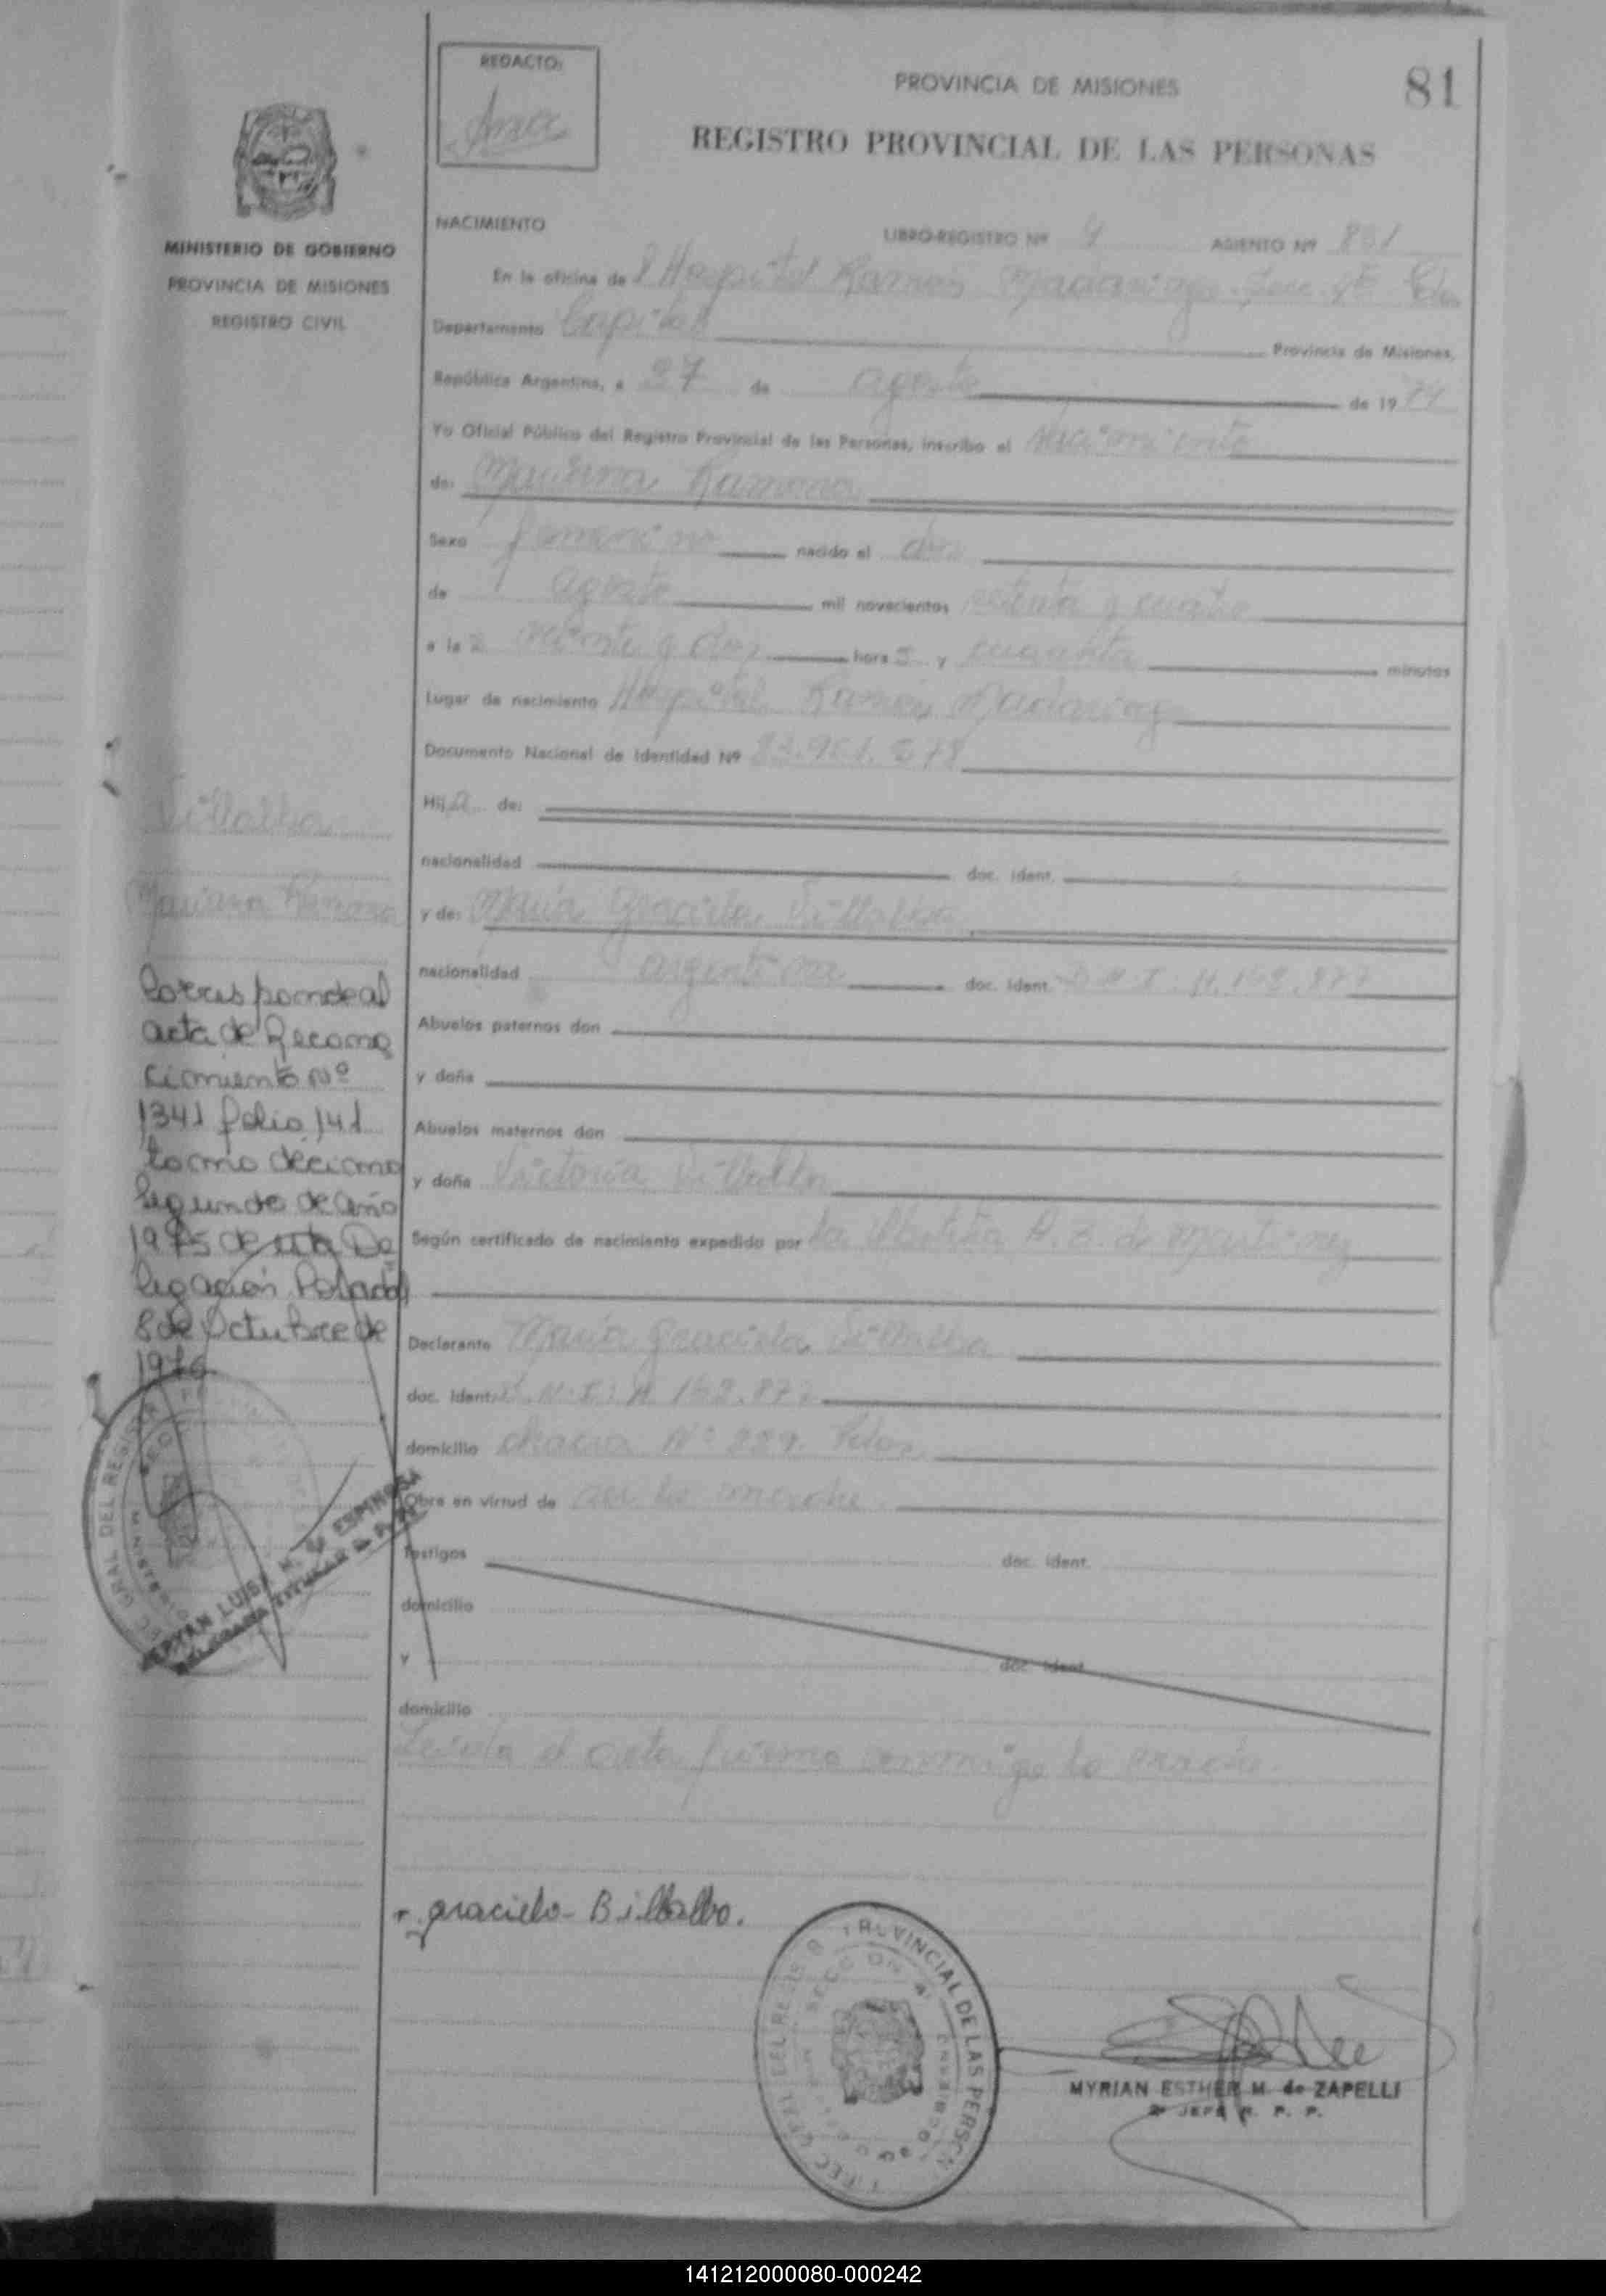 REDACTO:
Ana
PROVINCIA DE MISIONES
81
REGISTRO PROVINCIAL DE LAS PERSONAS
MINISTERIO DE GOBIERNO
PROVINCIA DE MISIONES
REGISTRO CIVIL
NACIMIENTO
LIBRO-REGISTRO Nº 4 ASIENTO Nº 881
En la oficina del Hospital Ramón Madariaga
Departamento Capital Provincia de Misiones,
República Argentina, a 27 de agosto de 1974
Yo Oficial Público del Registro Provincial de las Personas, inscribo el nacimiento
de: Ramona
Sexo femenino nacido el dos
de agosto mil novecientos setenta y cuatro
a las veinte y dos horas y cuarenta minutos
Lugar de nacimiento Hospital Ramón Madariaga
Documento Nacional de Identidad Nº
Hija de:
nacionalidad doc. ident.
y de: María Graciela Villalba
nacionalidad argentina doc. ident. D.N.I.
Abuelos paternos don
y doña
Abuelos maternos don
y doña Victoria Villalba
Según certificado de nacimiento expedido por la de Martinez
Declarante María Graciela Villalba
doc. ident. D.N.I.
domicilio chacra Nº
Obra en virtud de ser la madre
Testigos doc. ident.
domicilio
y doc. ident.
domicilio
Leida el acta firma conmigo la
Villalba
Mariana Ramona
Corresponde al
acta de Recono
cimiento Nº
1341 folio 141
tomo décimo
segundo de año
1975 de esta De
legación Posadas
8 de Octubre de
1976
LUISA M. de ESPINOSA
DELEGADA TITULAR
graciela Billalba.
PROVINCIAL DE LAS PERSON
MYRIAN ESTHER M. de ZAPELLI
JEFE R. P. P.
141212000080-000242